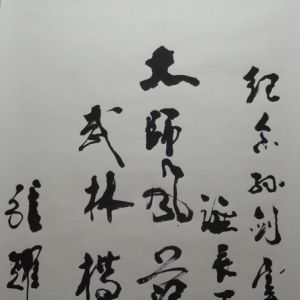 纪念孙剑雲
诞辰
大师风范
武林楷
張耀